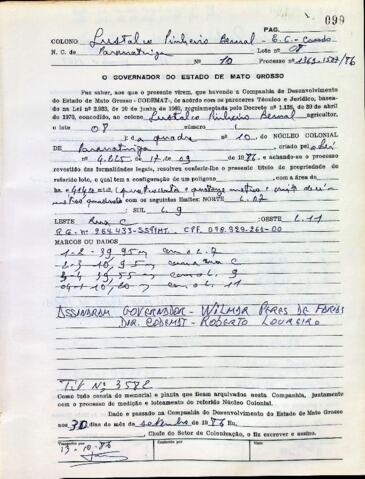 PAG. 099
COLONO Eustalco Pinheiro Bernal - B. C. - Casado
N. C. de Paranatinga Lote nº 08
Nº 10 Processo nº 1361-1587/86
O GOVERNADOR DO ESTADO DE MATO GROSSO
Faz saber, aos que o presente virem, que havendo a Companhia de Desenvolvimento
do Estado de Mato Grosso - CODEMAT-, de acordo com os pareceres Técnico e Jurídico, basea-
da na Lei nº 2.933, de 10 de junho de 1969, regulamentada pelo Decreto nº 1.138, de 29 de abril
de 1970, concedido, ao colono Eustalco Pinheiro Bernal agricultor,
o lote 08 número
da quadra nº 10 do NÚCLEO COLONIAL
DE Paranatinga criado Lei
nº 4.225 de 17.09 de 1986, e achando-se o processo
revestido das formalidades legais, resolveu conferir-lhe o presente título de propriedade do
referido lote, o qual tem a configuração de um polígono com a área de
metros quadrados com os seguintes limites: NORTE L. 07
SUL L. 9
LESTE Rua C OESTE L. 11
R.G. nº 264.433-SSP/MT. CPF. 078.989.261-00
MARCOS OU DADOS
1-2- 39,95 m com o L. 7
2-3- 10,95 m com a rua C
3-4- 39,55 m com o L. 9
04-1 10,20 m com o L. 11
ASSINARAM GOVERNADOR - WILMAR PERES DE FARIAS
DIR. CODEMAT - ROBERTO LOUREIRO
Tit Nº 3582
Como tudo consta do memorial e planta que ficam arquivados nesta Companhia, juntamente
com o processo de medição e loteamento do referido Núcleo Colonial.
Dado e passado na Companhia de Desenvolvimento do Estado de Mato Grosso
aos 30 dias do mês de setembro de 1986 Eu,
Chefe do Setor de Colonização, o fiz escrever e assino.
13-10-86
Conferido por
Visto